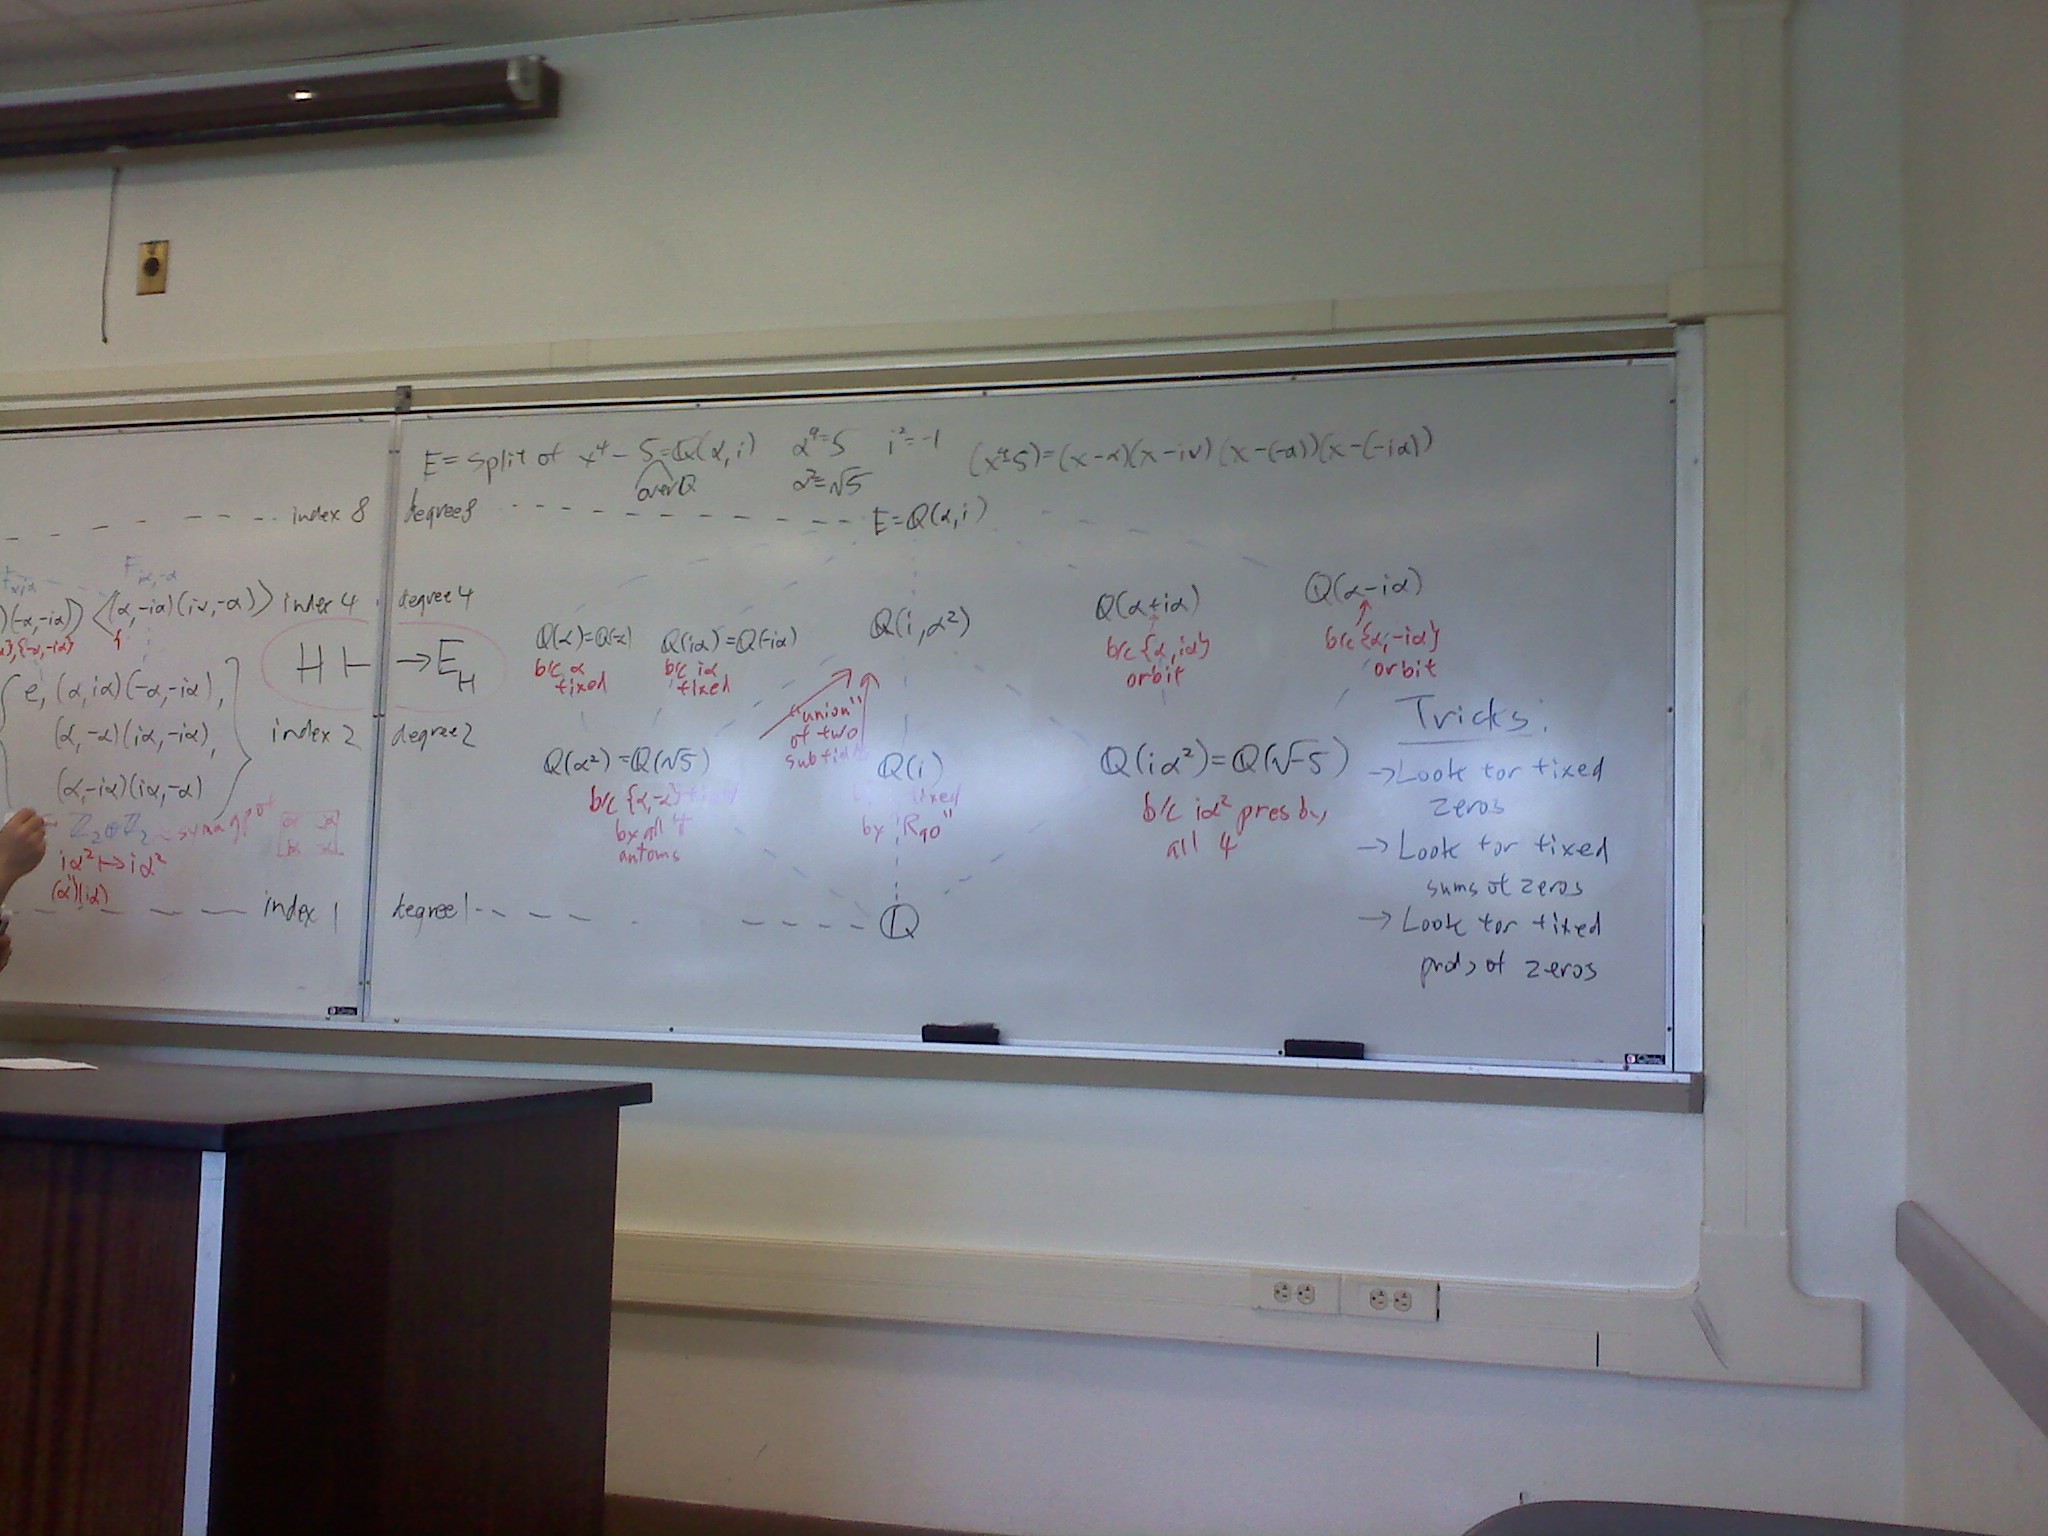 E = split of x⁴ - 5 = Q(α, i) α⁴ = 5 i² = -1 (x⁴-5) = (x-α)(x-iα)(x-(-α))(x-(-iα))
over Q α² = √5
index 8 degree 8 E = Q(α, i)
F iα, -α
)(-α, -iα)⟩ ⟨(α, -iα)(iα, -α)⟩ index 4 degree 4
{-α, -iα}
Q(α) = Q(-α) Q(iα) = Q(-iα) Q(i, α²) Q(α+iα) Q(α-iα)
b/c α fixed
b/c iα fixed
b/c {α, iα} orbit
b/c {α, -iα} orbit
H ↦ E_H
{ e, (α, iα)(-α, -iα),
(α, -α)(iα, -iα),
(α, -iα)(iα, -α) }
index 2 degree 2
"union"
of two
Q(α²) = Q(√5) Q(i) Q(iα²) = Q(√-5)
b/c {α, -α}
by all 4
automs
fixed
by "R90"
b/c iα² pres by
all 4
Z₂⊕Z₂
iα² ↦ iα²
(α)(iα)
index 1 degree 1 Q
Tricks:
→ Look for fixed
zeros
→ Look for fixed
sums of zeros
→ Look for fixed
prods of zeros